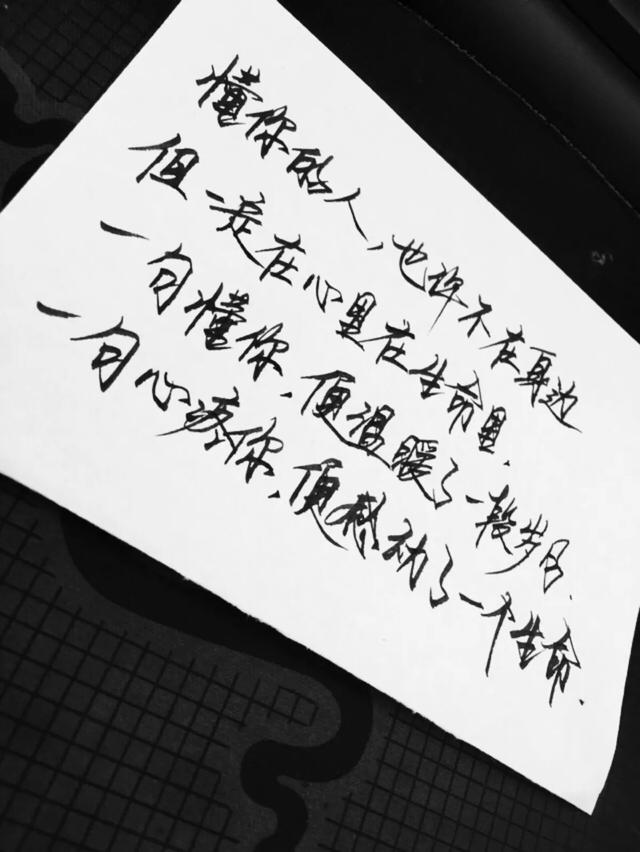 懂你的人,也许不在耳边
但一定在心里在生命里.
一句懂你.便温暖了一段岁月.
一句心疼你.便感动了一个生命.